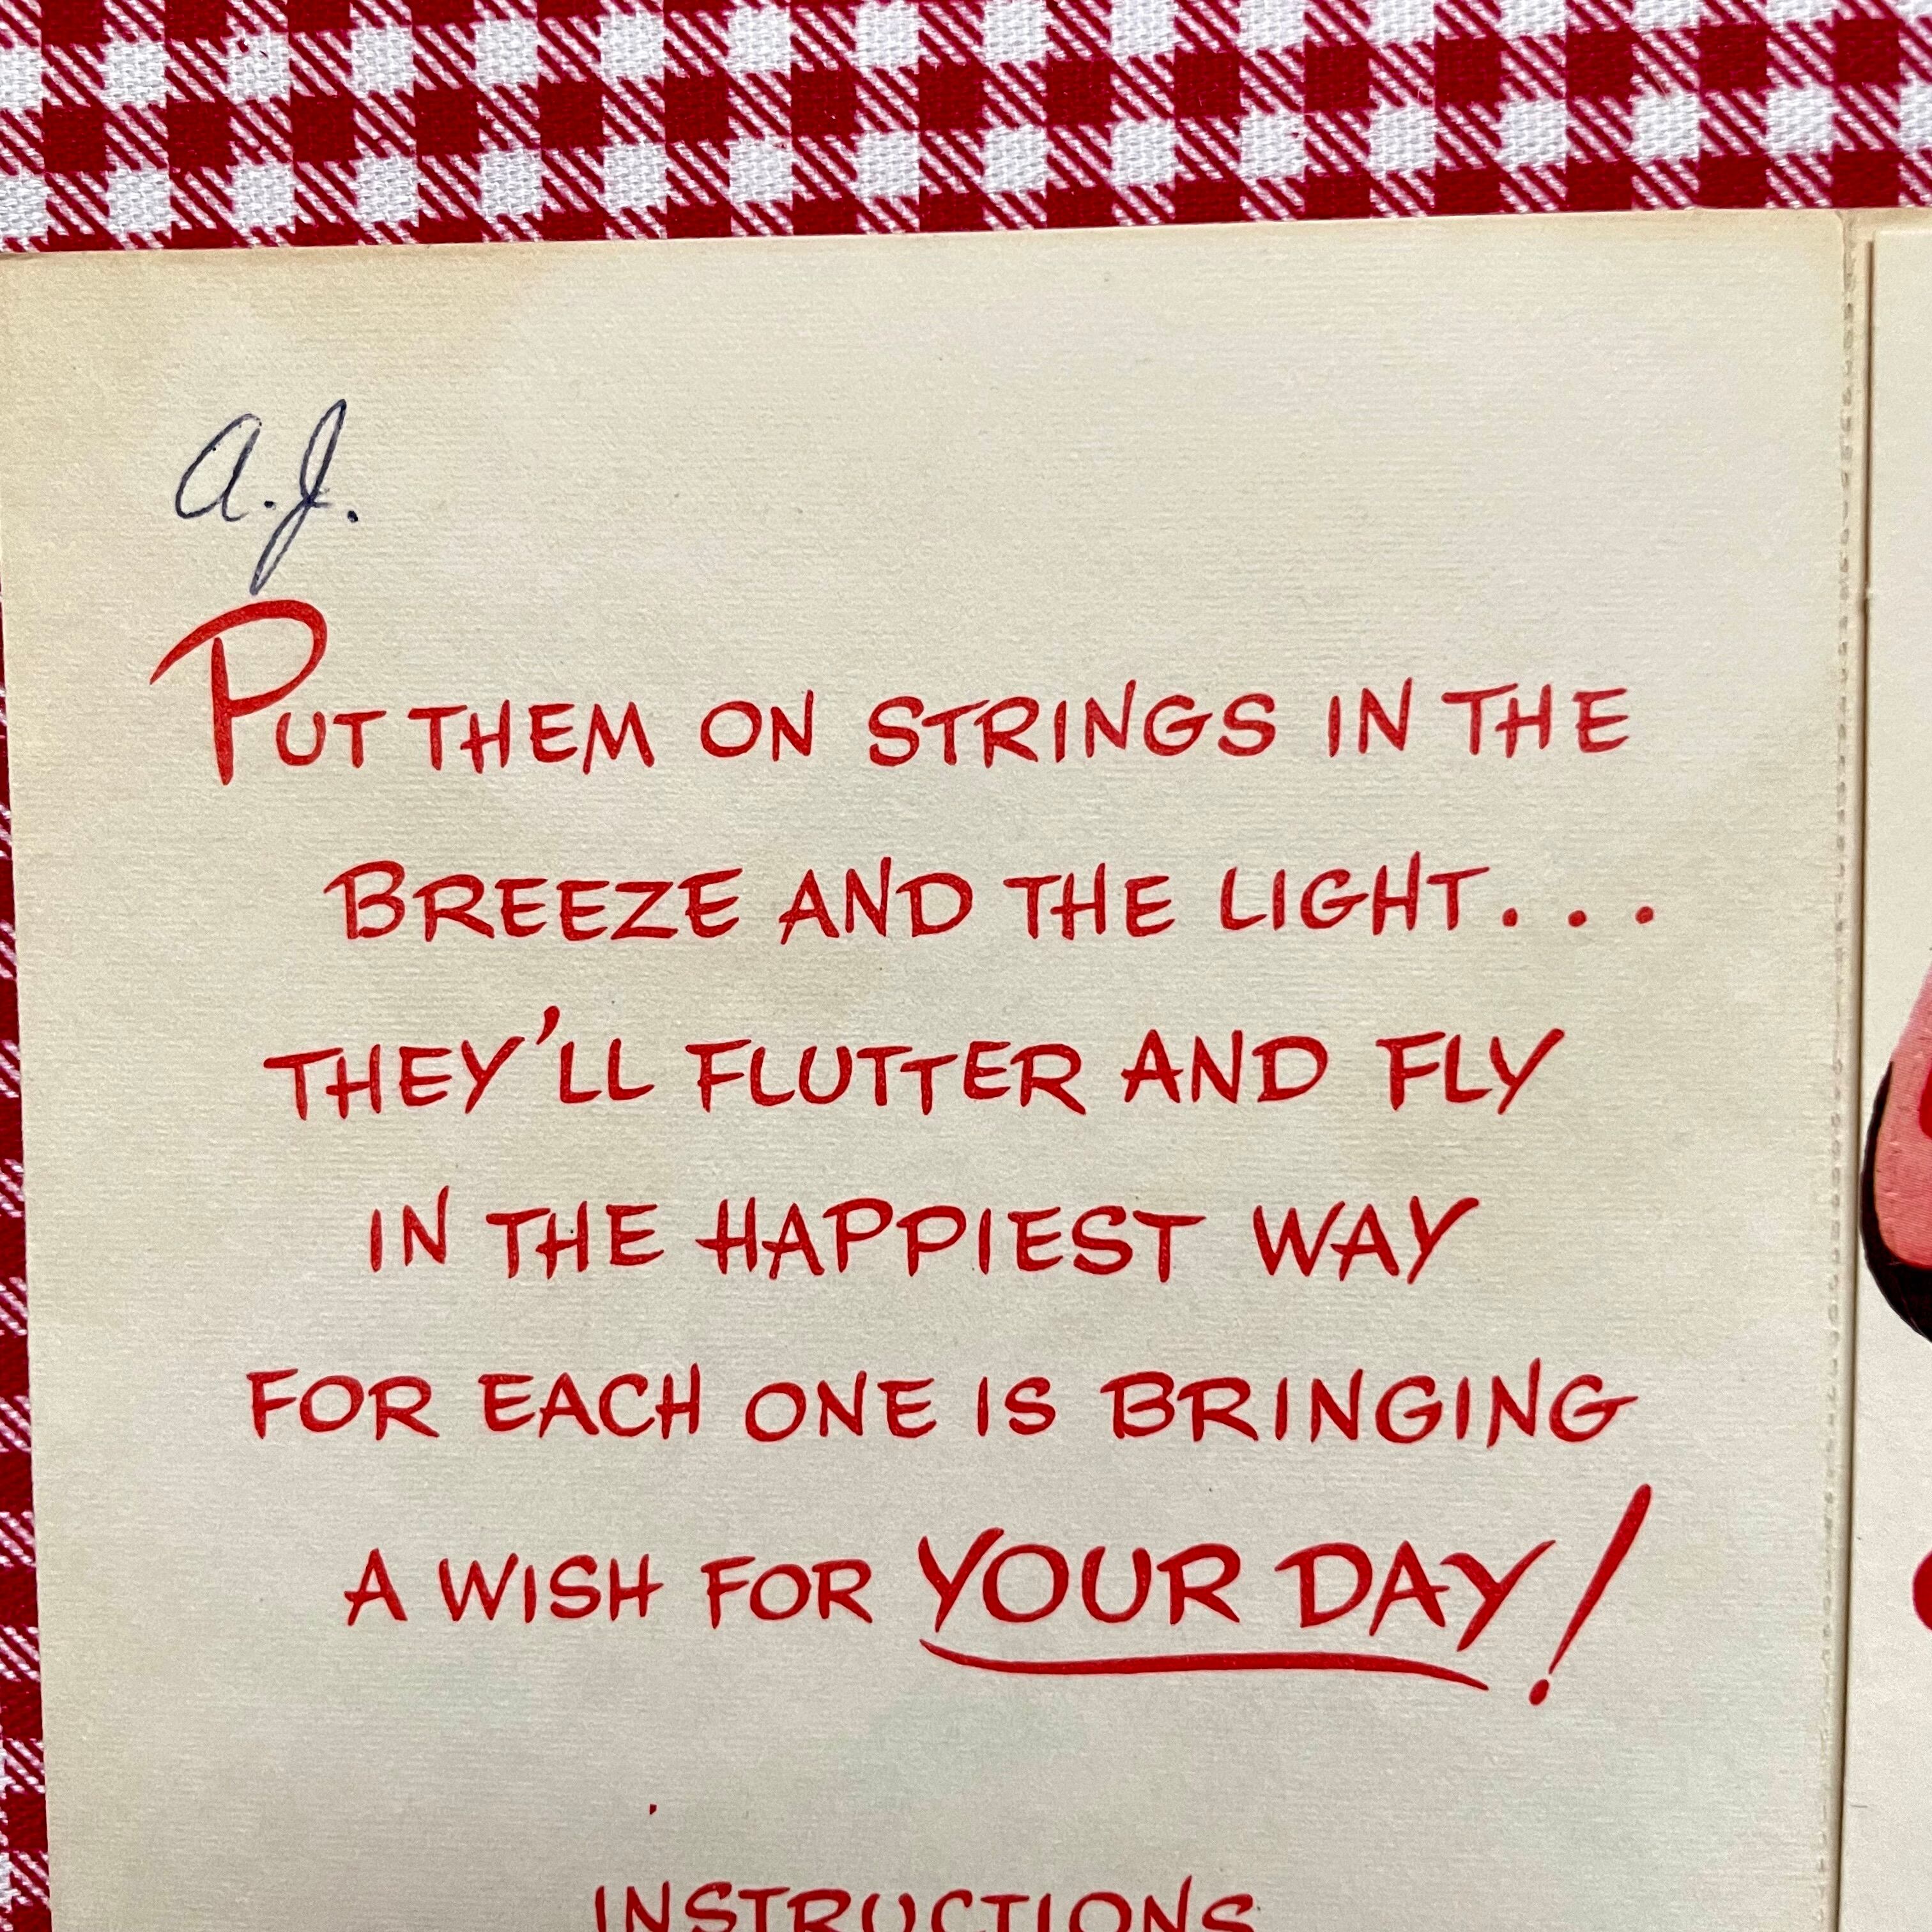 A.J.
PUT THEM ON STRINGS IN THE
BREEZE AND THE LIGHT...
THEY'LL FLUTTER AND FLY
IN THE HAPPIEST WAY
FOR EACH ONE IS BRINGING
A WISH FOR YOUR DAY!
INSTRUCTIONS